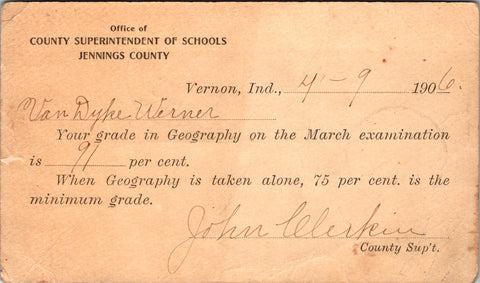 Office of
COUNTY SUPERINTENDENT OF SCHOOLS
JENNINGS COUNTY
Vernon, Ind., 4-9 1906.
Van Dyke Werner
Your grade in Geography on the March examination
is 91 per cent.
When Geography is taken alone, 75 per cent. is the
minimum grade.
John Clerkin
County Sup't.